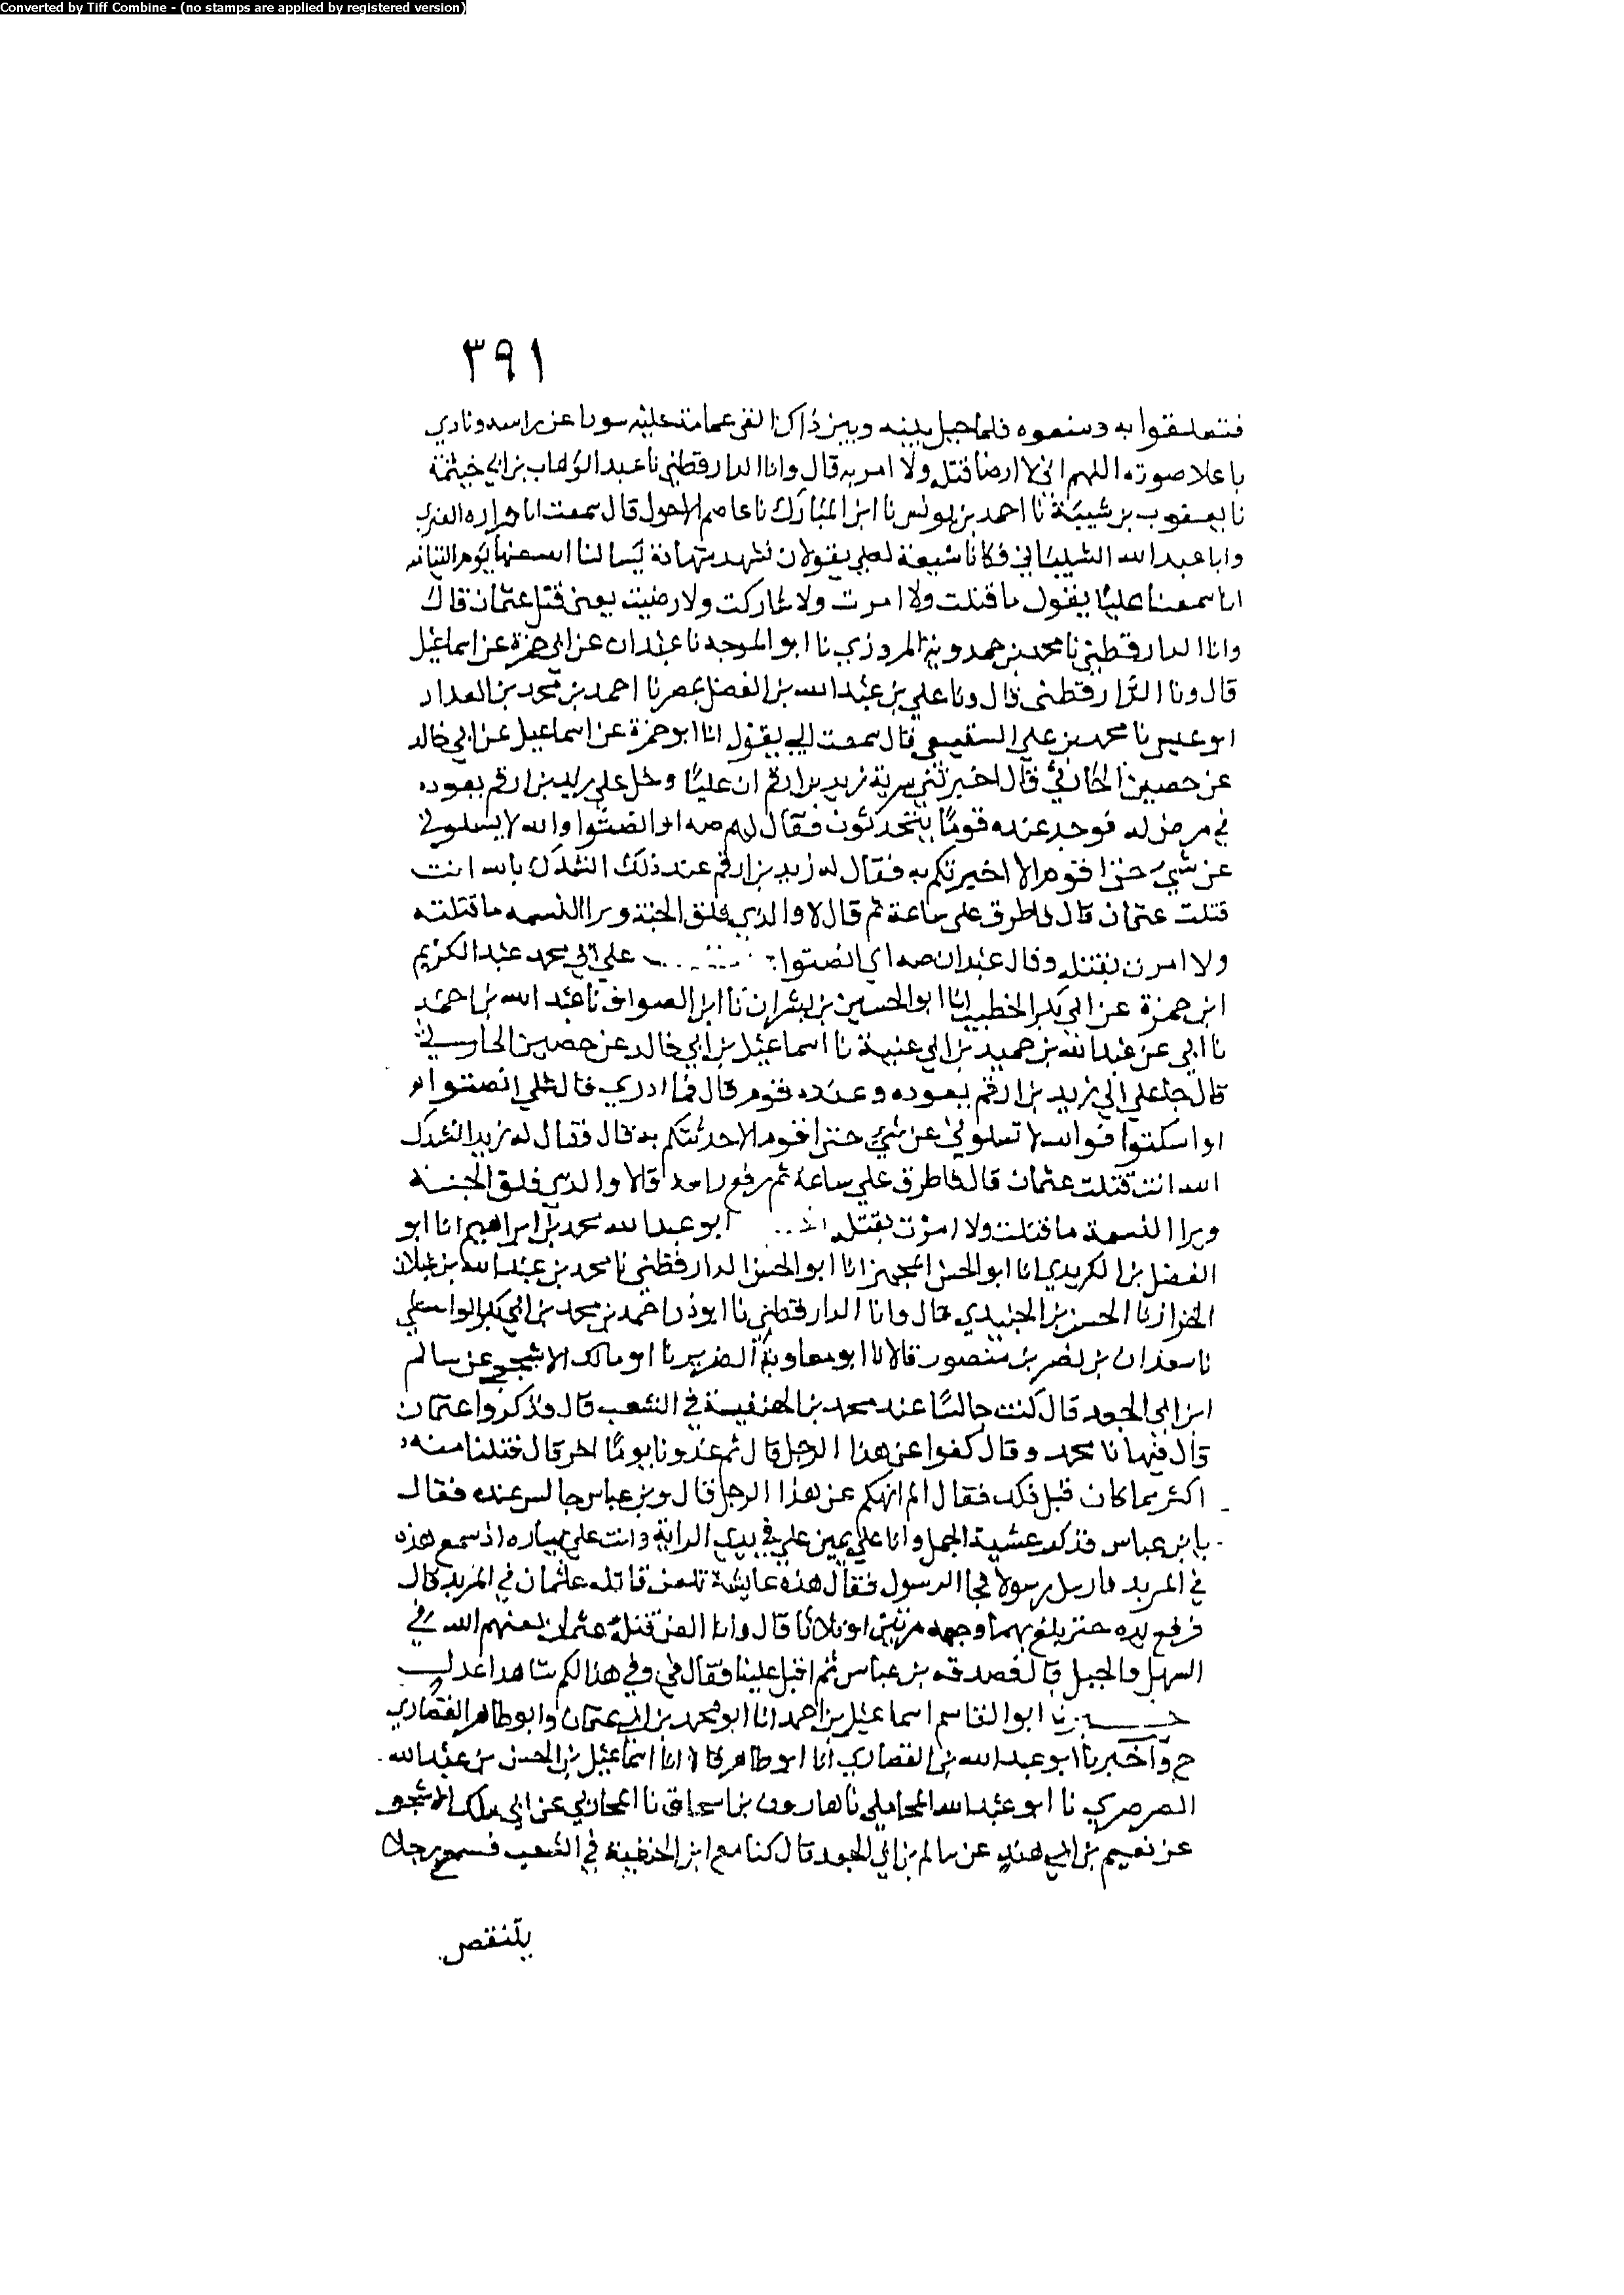 Converted by Tiff Combine - (no stamps are applied by registered version)
٣٩١
فتعلقوا به ومنعوه فلما حيل بينه وبين ذاك القى عمامة عليه سودا عن راسه ونادي
باعلا صوته اللهم اني لا ارضا قتله ولا امر به قال وانا الدارقطني نا عبد الوهاب بن ابي خيثمة
نا يعقوب بن شيبة نا احمد بن يونس نا ابن المبارك نا عاصم الاحول قال سمعت ابا
وابا عبد الله الشيباني فكانا شيعة لعلي يقولان نشهد شهادة يسالنا الله عنها يوم القيامة
انا سمعنا عليا يقول ما قتلت ولا امرت ولا شاركت ولا رضيت يعني قتل عثمان قال
وانا الدارقطني نا محمد بن حمدويه المروزي نا ابو الموجه نا عبدان عن ابي حمزة عن اسماعيل
قال ونا الدارقطني قال ونا علي بن عبد الله بن الفضل بمصر نا احمد بن محمد بن
ابو عيسى نا محمد بن علي قال سمعت ابي يقول انا ابو حمزة عن اسماعيل عن ابي خالد
عن حصين قال اخبرتني سرية زيد بن ارقم ان عليا دخل على زيد بن ارقم يعوده
في مرض له فوجد عنده قوما يتحدثون فقال لهم صه او انصتوا والله لا يسلوني
عن شيء حتى اقوم الا اخبرتكم به فقال له زيد بن ارقم عند ذلك انشدك بالله انت
قتلت عثمان قال فاطرق علي ساعة ثم قال لا والذي فلق الحبة وبرا النسمه ما قتلته
ولا امرت بقتله وقال عبدان صه اي انصتوا علي ابي محمد عبد الكريم
ابن حمزة عن ابي بكر الخطيب انا ابو الحسين بن بشران نا ابن الصواف نا عبد الله بن احمد
نا ابي عن عبد الله بن حميد بن ابي غنية نا اسماعيل بن ابي خالد عن حصين الحارثي
قال جا علي الى زيد بن ارقم يعوده وعنده قوم قال فما ادري قال علي انصتوا او
او اسكتوا فوالله لا تسلوني عن شيء حتى اقوم الا حدثتكم به قال فقال له زيد انشدك
الله انت قتلت عثمان قال فاطرق علي ساعة ثم رفع راسه قال لا والذي فلق الحبة
وبرا النسمة ما قتلت ولا امرت بقتله ابو عبد الله محمد بن ابراهيم انا ابو
الفضل بن الكريدي انا ابو الحسن المجهز انا ابو الحسن الدارقطني نا محمد بن عبد الله بن غيلان
الخزاز نا الحسن بن الجنيدي قال وانا الدارقطني نا ابوذر احمد بن محمد بن ابي بكر الواسطي
نا سعدان بن نصر بن منصور قالا نا ابو معاوية الضرير نا ابو مالك الاشجعي عن سالم
ابن ابي الجعد قال كنت جالسا عند محمد بن الحنفية في الشعب قال فذكروا عثمان
قال فنهانا محمد وقال كفوا عن هذا الرجل قال ثم غدونا يوما اخر قال فنلنا منه
اكثر مما كان قبل ذلك فقال الم انهكم عن هذا الرجل قال وبن عباس جالس عنده فقال
يا بن عباس تذكر عشية الجمل وانا على يمين علي في يدي الراية وانت على يساره اذ سمع هذه
في المربد فارسل رسولا فجا الرسول فقال هذه عايشة تلعن قتلة عثمان في المربد قال
فرفع يده حتى بلغ بهما وجهه مرتين او ثلاثا قال وانا العن قتلة عثمان لعنهم الله في
السهل والجبل قال فصدقه بن عباس ثم اقبل علينا فقال في وفي هذا لكم شاهدا عدل
ابو القاسم اسماعيل بن احمد انا ابو محمد بن ابي عثمان وابو طاهر القصاري
ح واخبرنا ابو عبد الله بن القصاري انا ابو طاهر قالا انا اسماعيل بن الحسن بن عبد الله
الصرصري نا ابو عبد الله المحاملي نا هارون بن اسحاق نا المحاربي عن ابي مالك الاشجعي
عن نعيم بن ابي هند عن سالم بن ابي الجعد قال كنا مع ابن الحنفية في الشعب فسمع رجلا
يتنقص